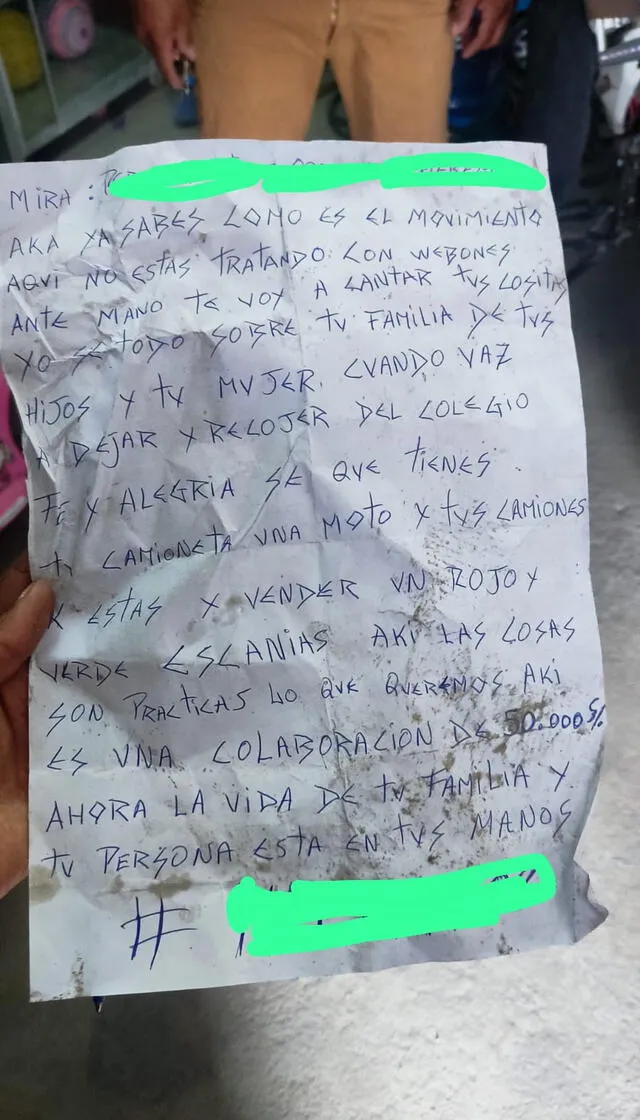 MIRA :
AKA YA SABES COMO ES EL MOVIMIENTO
AQUI NO ESTAS TRATANDO CON WEBONES
ANTE MANO TE VOY A CANTAR TUS COSITAS
YO SE TODO SOBRE TU FAMILIA DE TUS
HIJOS Y TU MUJER. CUANDO VAZ
A DEJAR Y RECOJER DEL COLEGIO
FE Y ALEGRIA SE QUE TIENES.
TU CAMIONETA UNA MOTO Y TUS CAMIONES
K ESTAS X VENDER UN ROJO Y
VERDE ESCANIAS AKI LAS COSAS
SON PRACTICAS LO QUE QUEREMOS AKI
ES UNA COLABORACION DE 50.000 S/.
AHORA LA VIDA DE TU FAMILIA Y
TU PERSONA ESTA EN TUS MANOS
#